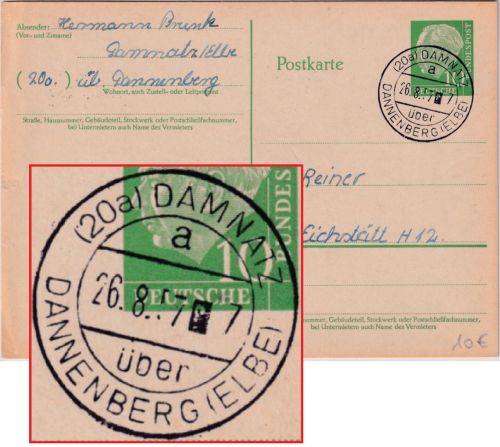 Absender: Hermann Brunk
(Vor- und Zuname)
Damnatz/Elbe
(20a) üb. Dannenberg
Wohnort, auch Zustell- oder Leitpostamt
Straße, Hausnummer, Gebäudeteil, Stockwerk oder Postschließfachnummer,
bei Untermietern auch Name des Vermieters
Postkarte
10
DEUTSCHE
BUNDESPOST
(20a) DAMNATZ
a
26.8.
7
über
DANNENBERG (ELBE)
Reiner
Eichstätt H 12.
nummer, Gebäudeteil, Stockwerk oder Postschließfachnummer,
bei Untermietern auch Name des Vermieters
10€
(20a) DAMNATZ
a
10
UNDES
DEUTSCHE
26.8.
7 7
über
DANNENBERG (ELBE)